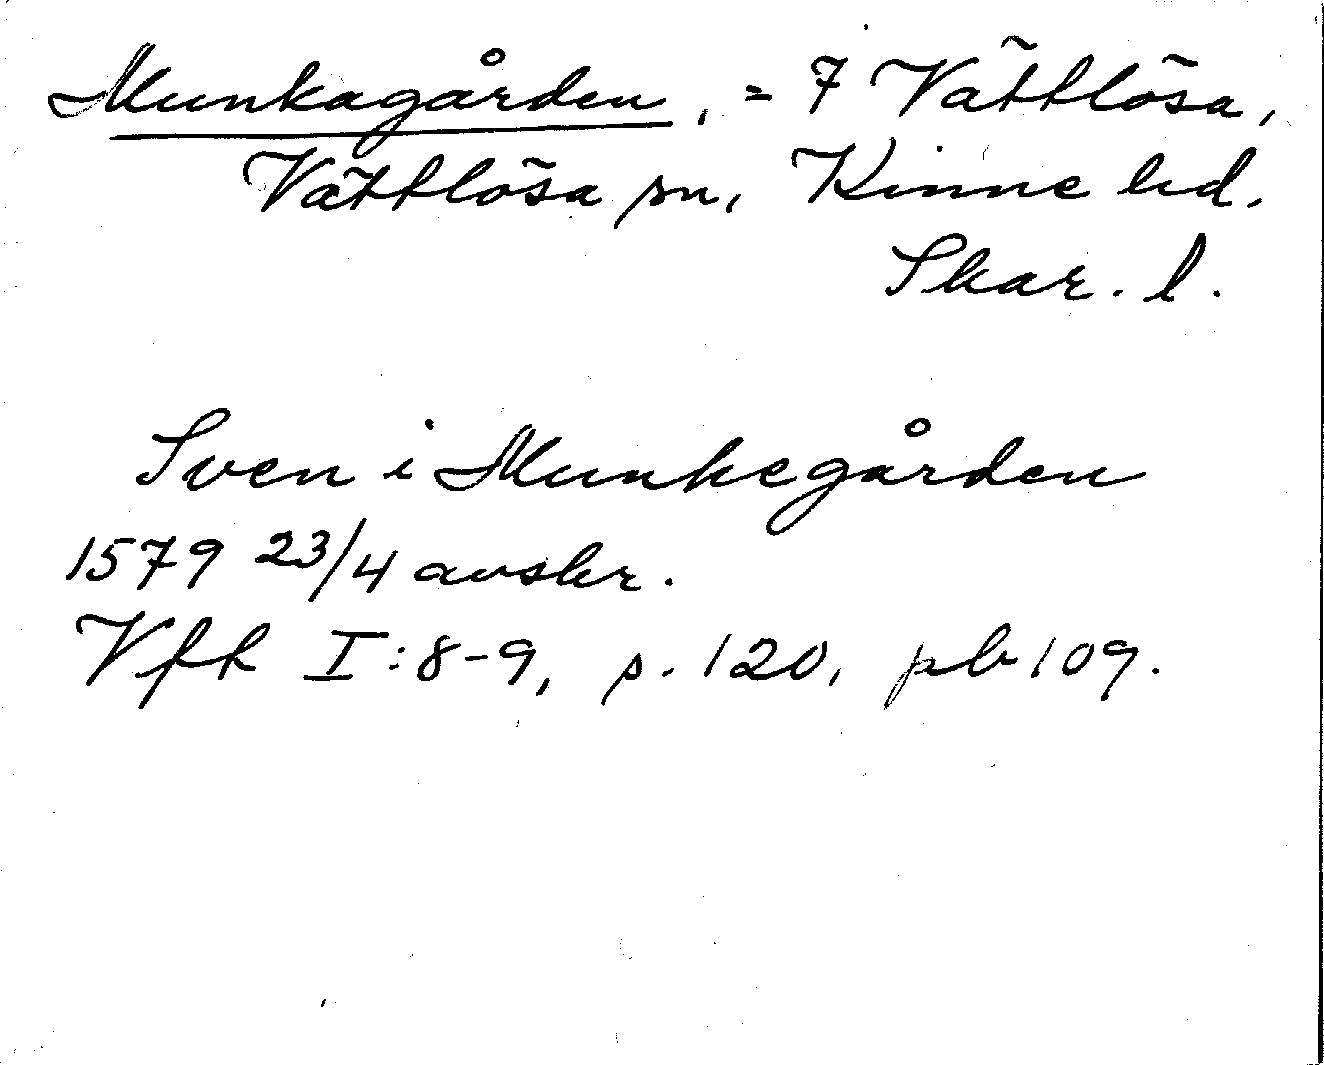 Munkagården, = 7 Vättlösa,
Vättlösa sn, Kinne hd.
Skar. l.
Sven i Munkegården
1579 23/4 avskr.
Vfk I:8-9, s. 120, pb 109.